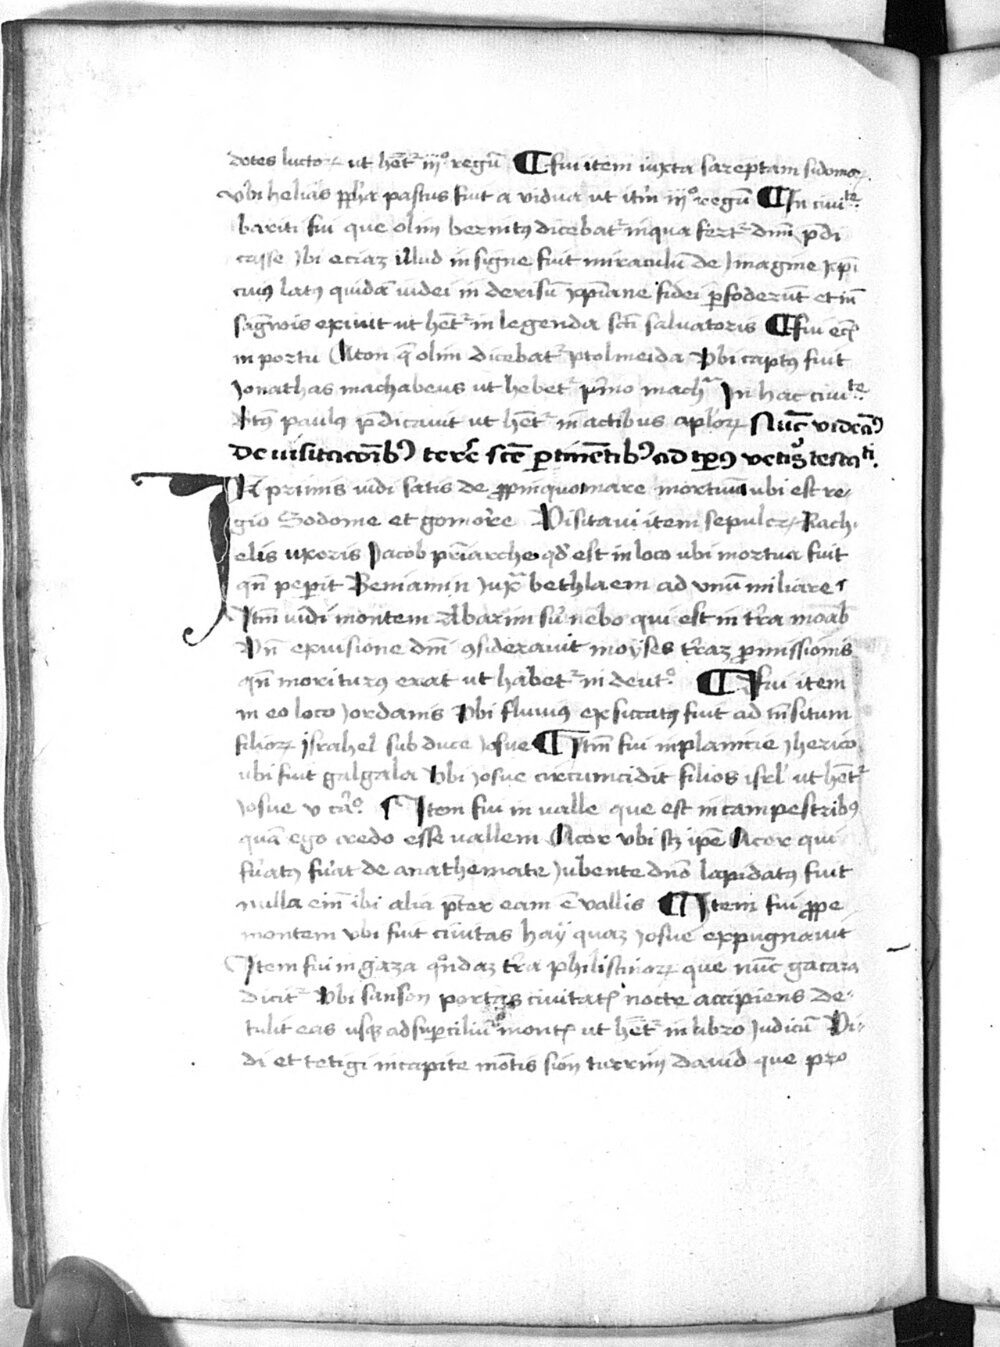 dotes lucto⁊ ut hēt᷑ iijº regū ¶ fui item iuxta sareptam sidonio⁊.
vbi helias ꝓph̄a pastus fuit a vidua ut itm̄ iijº regū ¶ In ciuite.
bariti fui que olim beritꝰ dicebat᷑ in qua fert᷑ dm̄ p̄di
casse Ibi eciaz illud insigne fuit miraculū de Imagine xp̄i
cuiꝰ latꝰ quidā iudei in derisū xp̄iane fidei ꝑfoderūt et in̄
sagwis exiuit ut hēt᷑ in legenda sc̄ti saluatoris ¶ fui ecı̄
in portu Acon q̄ olim dicebat᷑ ptolmeida Vbi captꝰ fuit
Jonathas machabeus ut hebet᷑ pͥmo macha In hac ciuite.
Btꝰ paulꝰ p̄dicauit ut hēt᷑ in actibus aplo⁊ Nūc videāꝰ
de uisitac̄oibꝰ terre sc̄e ꝑtinētibꝰ ad tp̄ꝰ vetiꝰ testati.
IN primis uidi satis de ꝓpinquo mare mortuū ubi est re-
gio Sodome et gomorre Visitaui item sepulcr⁊ Rach-
elis uxoris Jacob pr̄iarche qd̄ est in loco ubi mortua fuit
qn̄ peperit Beniamin Iux̄ bethlaem ad vnū miliare
Itm̄ uidi montem Abarim siu̅ nebo qui est in tr̄a moab
Vn̄ ex uisione dm̄i ꝯsiderauit moyses tr̄az ꝓmissionis
qn̄ moriturꝰ erat ut habet᷑ in deutº. ¶ fui item
in eo loco Iordanis Vbi fluuiꝰ exsiccatꝰ fuit ad tn̄situm
filio⁊ israhel sub duce iosue ¶ Itm̄ fui in planicie Iherico
ubi fuit galgala Vbi iosue circumcidit filios isrl̄ ut hēt᷑
Josue v caº. ¶ Item fui in ualle que est in campestribꝰ
quā ego credo esse uallem Acor vbi sz ip̄e Acor qui
fu̅atꝰ fu̅at de anathemate Iubente dn̄o lapidatꝰ fuit
nulla eīn ibi alia p̄ter eam ē vallis ¶ Item fui ꝓpe
montem vbi fuit ciuitas hay quaz iosue expugnauit
Item fui in gaza qn̄daz tr̄a philistino⁊ que nūc gacara
dicit᷑ Vbi sanson portas ciuitatꝭ nocte accipiens de-
tulit eas usqz ad suꝑciliū montꝭ ut hēt᷑ in libro Iudicū Vi-
di et tetigi in capite mōtis sion turrim dauid que pro